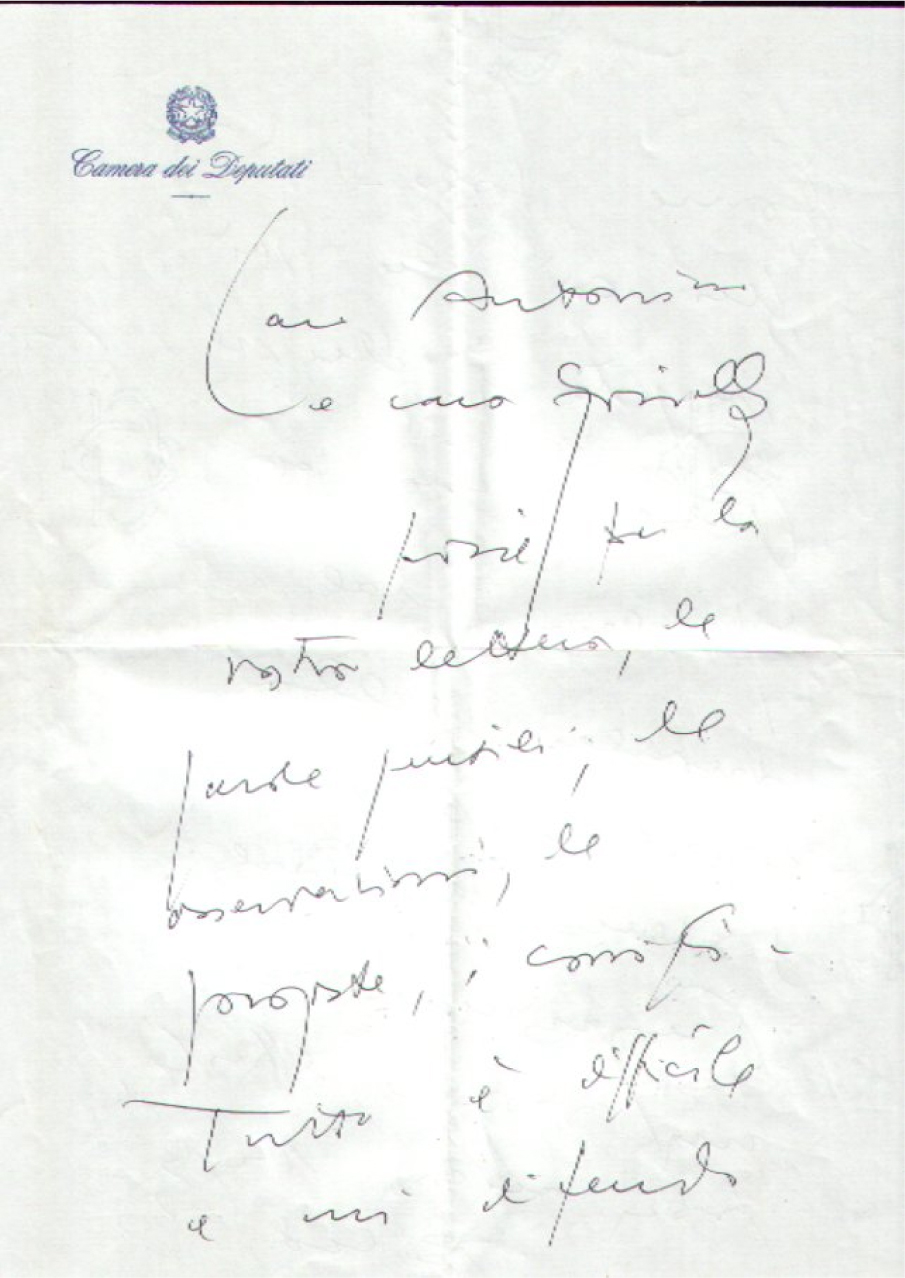 Camera dei Deputati
e caro
grazie per la
vostra lettera, le
parole gentili, le
osservazioni, le
proposte, i consigli -
Tutto è difficile
e mi difendo